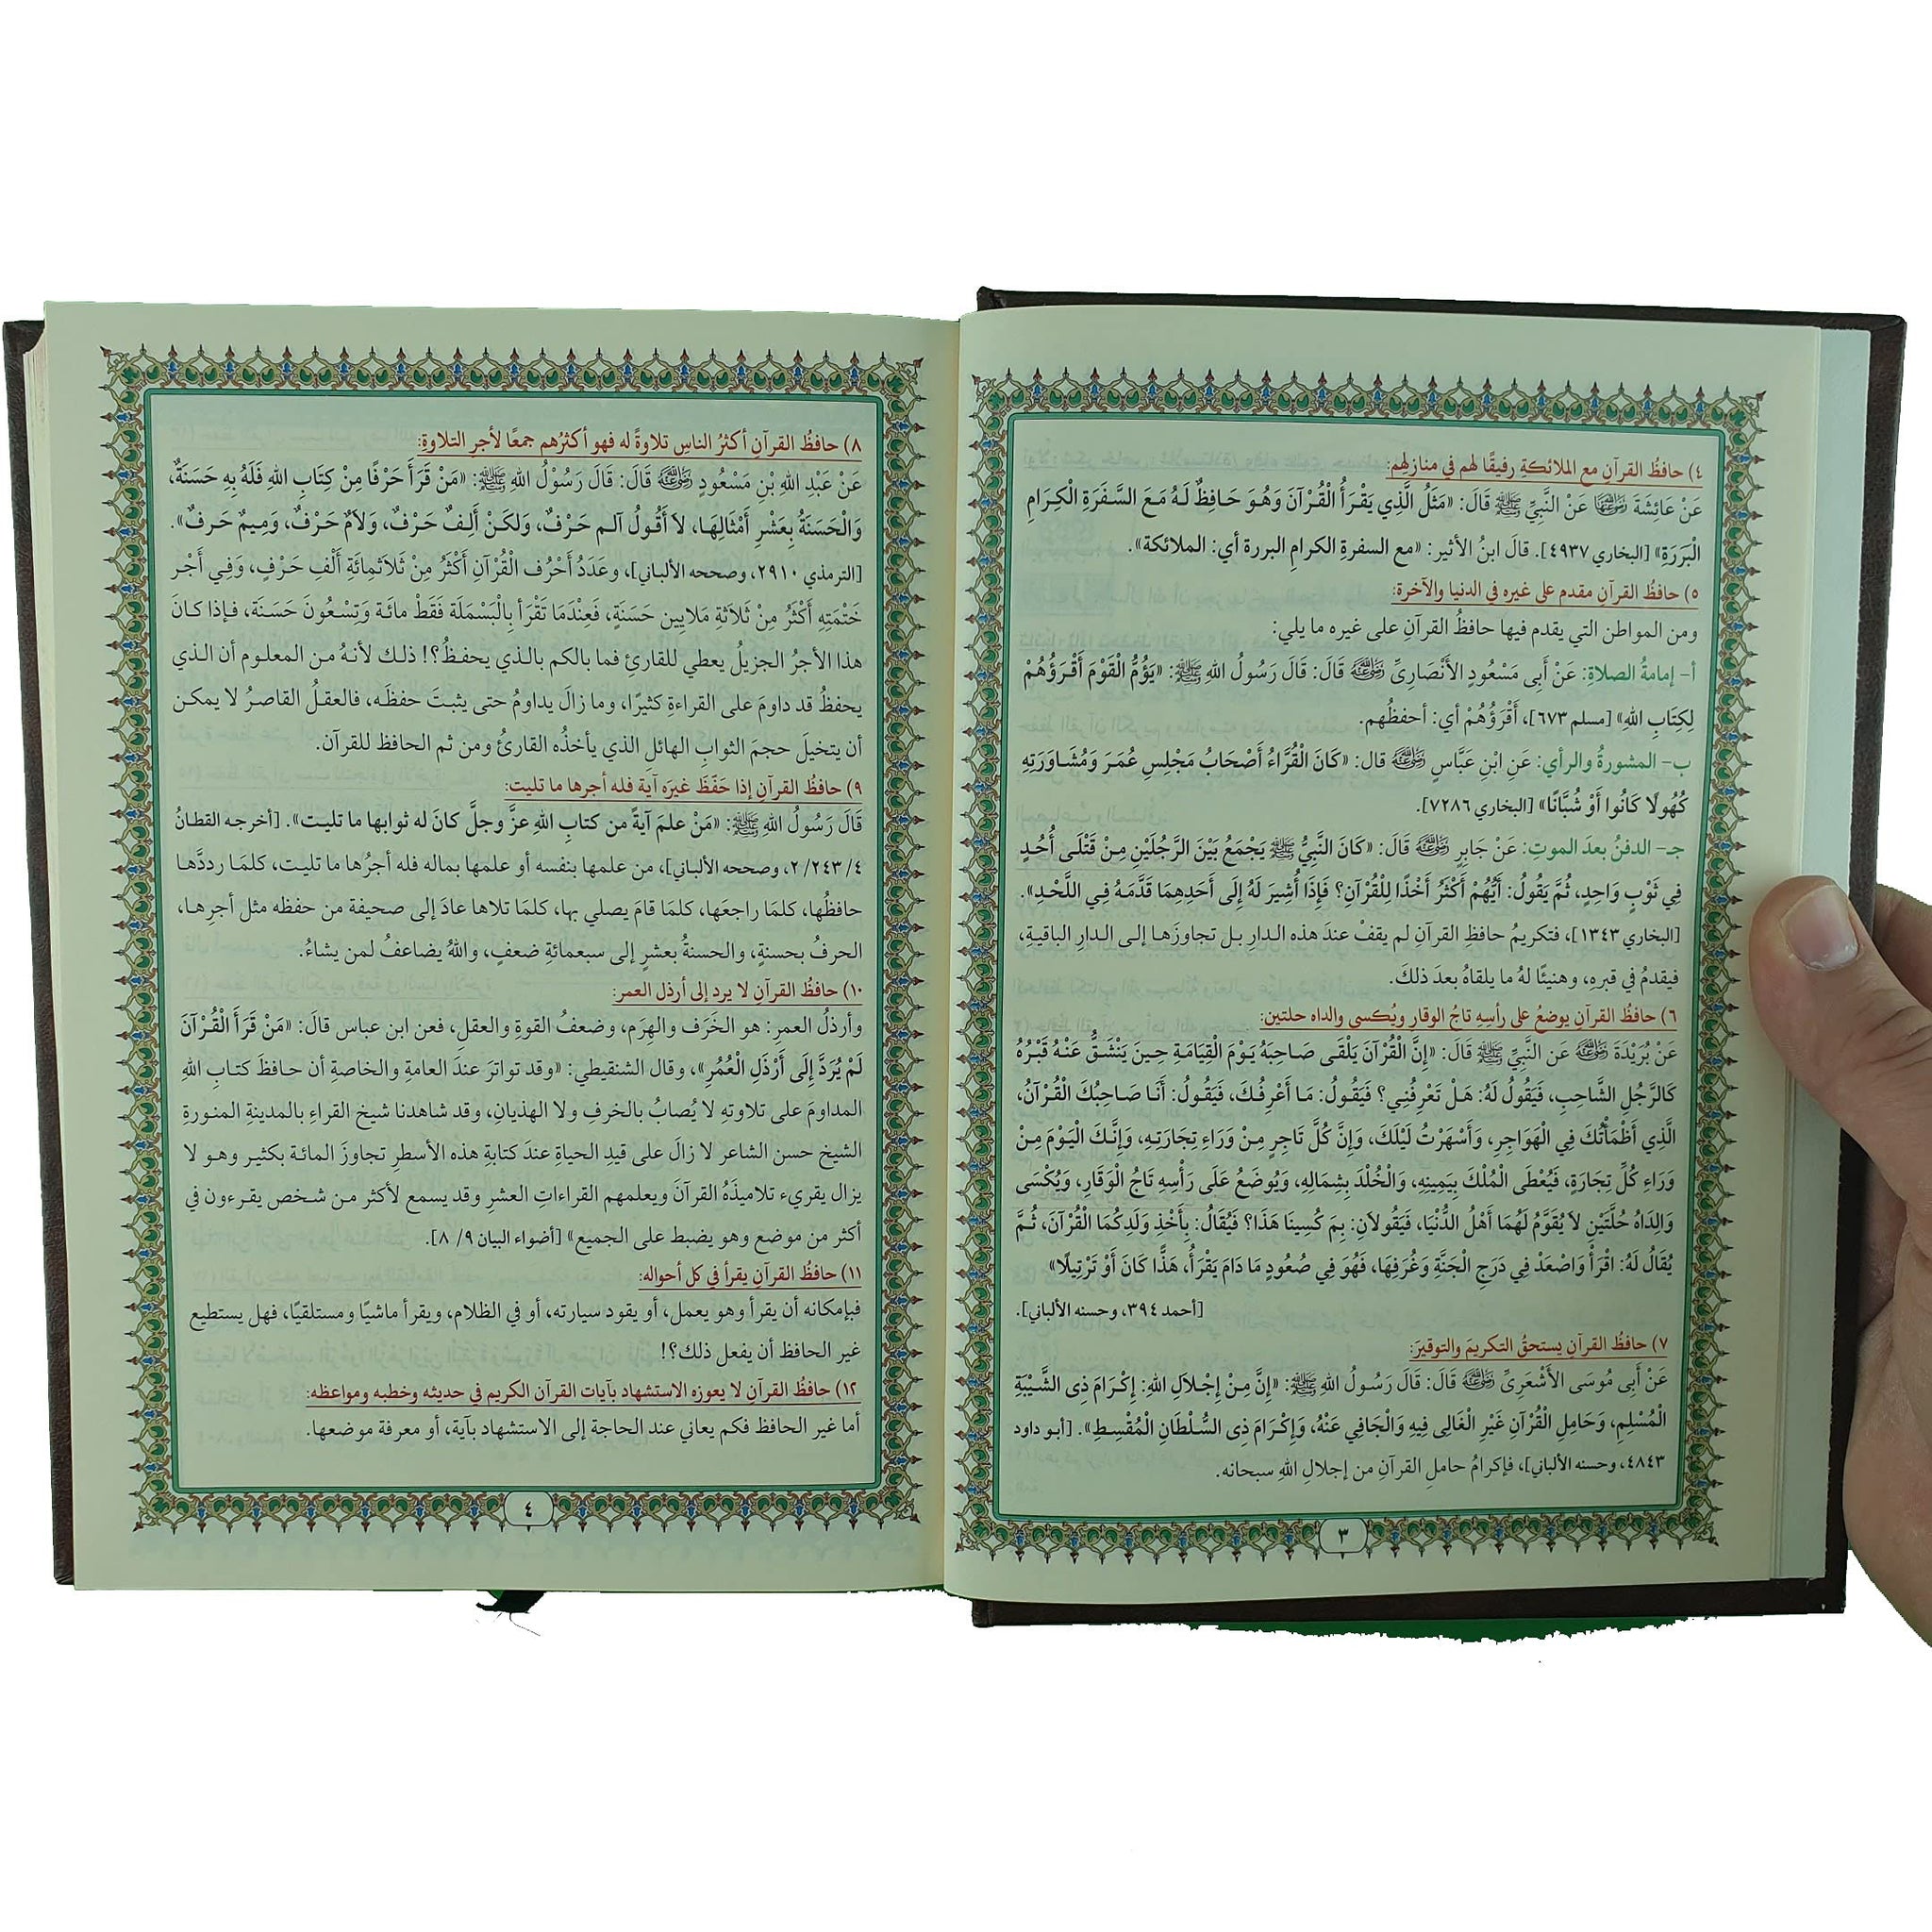 ٤) حافظُ القرآنِ مع الملائكةِ رفيقًا لهم في منازلِهِم:
عَنْ عَائِشَةَ رضي الله عنها عَنْ النَّبِيِّ ﷺ قَالَ: «مَثَلُ الَّذِي يَقْرَأُ الْقُرْآنَ وَهُوَ حَافِظٌ لَهُ مَعَ السَّفَرَةِ الْكِرَامِ
الْبَرَرَةِ» [البخاري ٤٩٣٧]. قالَ ابنُ الأثير: «مع السفرةِ الكرامِ البررة أي: الملائكة».
٥) حافظُ القرآنِ مقدم على غيره في الدنيا والآخرة:
ومن المواطن التي يقدم فيها حافظُ القرآنِ على غيره ما يلي:
أ- إمامةُ الصلاةِ: عَنْ أَبِى مَسْعُودٍ الأَنْصَارِىِّ رضي الله عنه قَالَ: قَالَ رَسُولُ اللهِ ﷺ: «يَؤُمُّ الْقَوْمَ أَقْرَؤُهُمْ
لِكِتَابِ اللهِ» [مسلم ٦٧٣]، أَقْرَؤُهُمْ أي: أحفظُهم.
ب- المشورةُ والرأي: عَنِ ابْنِ عَبَّاسٍ رضي الله عنه قال: «كَانَ الْقُرَّاءُ أَصْحَابُ مَجْلِسِ عُمَرَ وَمُشَاوَرَتِهِ
كُهُولًا كَانُوا أَوْ شُبَّانًا» [البخاري ٧٢٨٦].
جـ- الدفنُ بعدَ الموتِ: عَنْ جَابِرٍ رضي الله عنه قَالَ: «كَانَ النَّبِيُّ ﷺ يَجْمَعُ بَيْنَ الرَّجُلَيْنِ مِنْ قَتْلَى أُحُدٍ
فِي ثَوْبٍ وَاحِدٍ، ثُمَّ يَقُولُ: أَيُّهُمْ أَكْثَرُ أَخْذًا لِلْقُرْآنِ؟ فَإِذَا أُشِيرَ لَهُ إِلَى أَحَدِهِمَا قَدَّمَهُ فِي اللَّحْدِ».
[البخاري ١٣٤٣]، فتكريمُ حافظِ القرآنِ لم يقفْ عندَ هذه الدارِ بل تجاوزَها إلى الدارِ الباقيةِ،
فيقدمُ في قبرِه، وهنيئًا لهُ ما يلقاهُ بعدَ ذلكَ.
٦) حافظُ القرآنِ يوضعُ على رأسِهِ تاجُ الوقارِ ويُكسى والداه حلتين:
عَنْ بُرَيْدَةَ رضي الله عنه عَن النَّبِيِّ ﷺ قَالَ: «إِنَّ الْقُرْآنَ يَلْقَى صَاحِبَهُ يَوْمَ الْقِيَامَةِ حِينَ يَنْشَقُّ عَنْهُ قَبْرُهُ
كَالرَّجُلِ الشَّاحِبِ، فَيَقُولُ لَهُ: هَلْ تَعْرِفُنِي؟ فَيَقُولُ: مَا أَعْرِفُكَ، فَيَقُولُ: أَنَا صَاحِبُكَ الْقُرْآنُ،
الَّذِي أَظْمَأْتُكَ فِي الْهَوَاجِرِ، وَأَسْهَرْتُ لَيْلَكَ، وَإِنَّ كُلَّ تَاجِرٍ مِنْ وَرَاءِ تِجَارَتِهِ، وَإِنَّكَ الْيَوْمَ مِنْ
وَرَاءِ كُلِّ تِجَارَةٍ، فَيُعْطَى الْمُلْكَ بِيَمِينِهِ، وَالْخُلْدَ بِشِمَالِهِ، وَيُوضَعُ عَلَى رَأْسِهِ تَاجُ الْوَقَارِ، وَيُكْسَى
وَالِدَاهُ حُلَّتَيْنِ لاَ يُقَوَّمُ لَهُمَا أَهْلُ الدُّنْيَا، فَيَقُولاَنِ: بِمَ كُسِينَا هَذَا؟ فَيُقَالُ: بِأَخْذِ وَلَدِكُمَا الْقُرْآنَ، ثُمَّ
يُقَالُ لَهُ: اقْرَأْ وَاصْعَدْ فِي دَرَجِ الْجَنَّةِ وَغُرَفِهَا، فَهُوَ فِي صُعُودٍ مَا دَامَ يَقْرَأُ، هَذًّا كَانَ أَوْ تَرْتِيلًا»
[أحمد ٣٩٤، وحسنه الألباني].
٧) حافظُ القرآنِ يستحقُ التكريمَ والتوقيرَ:
عَنْ أَبِى مُوسَى الأَشْعَرِىِّ رضي الله عنه قَالَ: قَالَ رَسُولُ اللهِ ﷺ: «إِنَّ مِنْ إِجْلاَلِ اللهِ: إِكْرَامَ ذِى الشَّيْبَةِ
الْمُسْلِمِ، وَحَامِلِ الْقُرْآنِ غَيْرِ الْغَالِى فِيهِ وَالْجَافِي عَنْهُ، وَإِكْرَامَ ذِى السُّلْطَانِ الْمُقْسِطِ». [أبو داود
٤٨٤٣، وحسنه الألباني]، فإكرامُ حاملِ القرآنِ من إجلالِ اللهِ سبحانه.
٣
٨) حافظُ القرآنِ أكثرُ الناسِ تلاوةً له فهو أكثرُهم جمعًا لأجرِ التلاوةِ:
عَنْ عَبْدِ اللهِ بْنِ مَسْعُودٍ رضي الله عنه قَالَ: قَالَ رَسُوْلُ اللهِ ﷺ: «مَنْ قَرَأَ حَرْفًا مِنْ كِتَابِ اللهِ فَلَهُ بِهِ حَسَنَةٌ،
وَالْحَسَنَةُ بِعَشْرِ أَمْثَالِهَا، لاَ أَقُولُ آلم حَرْفٌ، وَلكَنْ أَلِفٌ حَرْفٌ، وَلاَمٌ حَرْفٌ، وَمِيمٌ حَرفٌ».
[الترمذي ٢٩١٠، وصححه الألباني]، وعَدَدُ أَحْرُف الْقُرْآنِ أَكْثَرُ مِنْ ثَلاَثمِائَةِ أَلْفِ حَرْفٍ، وَفِي أَجْرِ
خَتْمَتِهِ أَكْثَرُ مِنْ ثَلاَثةِ مَلاَيِين حَسَنَةٍ، فَعِنْدَمَا تَقْرَأ بِالْبَسْمَلَة فَقَطْ مائة وَتِسْعُونَ حَسَنَة، فإذا كانَ
هذا الأجرُ الجزيلُ يعطي للقارئِ فما بالكم بالذي يحفظُ؟! ذلك لأنهُ من المعلوم أن الذي
يحفظُ قد داومَ على القراءةِ كثيرًا، وما زالَ يداومُ حتى يثبتَ حفظَه، فالعقلُ القاصرُ لا يمكن
أن يتخيلَ حجمَ الثوابِ الهائل الذي يأخذُه القارئُ ومن ثم الحافظ للقرآن.
٩) حافظُ القرآنِ إذا حَفَّظَ غيرَه آيَة فله أجرها ما تليت:
قَالَ رَسُولُ اللهِ ﷺ: «مَنْ علمَ آيةً من كتابِ اللهِ عزَّ وجلَّ كانَ له ثوابها ما تليت». [أخرجه القطانُ
٤/ ٢/٢٤٣، وصححه الألباني]، من علمها بنفسه أو علمها بماله فله أجرُها ما تليت، كلمَا رددَّها
حافظُها، كلمَا راجعَها، كلمَا قامَ يصلي بها، كلمَا تلاها عادَ إلى صحيفة من حفظه مثل أجرِها،
الحرفُ بحسنةٍ، والحسنةُ بعشرٍ إلى سبعمائةِ ضعفٍ، واللهُ يضاعفُ لمن يشاءُ.
١٠) حافظُ القرآنِ لا يرد إلى أرذل العمر:
وأرذلُ العمرِ: هو الخَرَف والهِرَم، وضعفُ القوةِ والعقل، فعن ابن عباس قالَ: «مَنْ قَرَأَ الْقُرْآنَ
لَمْ يُرَدَّ إِلَى أَرْذَلِ الْعُمُرِ»، وقال الشنقيطي: «وقد تواترَ عندَ العامةِ والخاصةِ أن حافظَ كتابِ اللهِ
المداومَ على تلاوتهِ لا يُصابُ بالخرفِ ولا الهذيانِ، وقد شاهدنا شيخ القراءِ بالمدينةِ المنورةِ
الشيخ حسن الشاعر لا زالَ على قيدِ الحياةِ عندَ كتابةِ هذه الأسطرِ تجاوزَ المائة بكثير وهو لا
يزال يقريء تلاميذَهُ القرآنَ ويعلمهم القراءاتِ العشرِ وقد يسمع لأكثر من شخص يقرءون في
أكثر من موضع وهو يضبط على الجميع» [أضواء البيان ٩/ ٨].
١١) حافظُ القرآنِ يقرأ في كل أحواله:
فبإمكانه أن يقرأ وهو يعمل، أو يقود سيارته، أو في الظلام، ويقرأ ماشيًا ومستلقيًا، فهل يستطيع
غير الحافظ أن يفعل ذلك؟!
١٢) حافظُ القرآنِ لا يعوزه الاستشهاد بآيات القرآن الكريم في حديثه وخطبه ومواعظه:
أما غير الحافظ فكم يعاني عند الحاجة إلى الاستشهاد بآية، أو معرفة موضعها.
٤